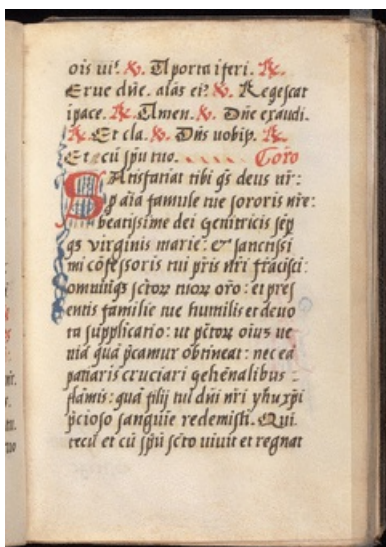 ois ui⁊. ℣. A porta iferi. ℟.
Erue dñe. alãs eiꝰ. ℟. Regescat
ipace. ℟. Amen. ℣. Dñe exaudi.
℟. Et cla. ℣. Dñs uobisʒ. ℟.
Et cũ spũ tuo. Coro
Satisfaciat tibi q̃s deus nr̃:
p aĩa famule tue sororis nr̃e:
beatissime dei genitricis sẽp
qꝫ virginis marie: & sanctissi
mi cõfessoris tui pr̃is nr̃i frãcisci:
omniũqꝫ sctoꝝ tuoꝝ oro: et pres
entis familie tue humilis et deuo
ta supplicatio: ut pctoꝝ oiuꝫ ue
niã quã p̃camur obtineat: nec eã
patiaris cruciari gehẽnalibus
flãmis: quã filij tui dñi nr̃i yhu xp̃i
p̃cioso sanguie redemisti. Qui.
tecũ et cũ spũ scto uiuit et regnat